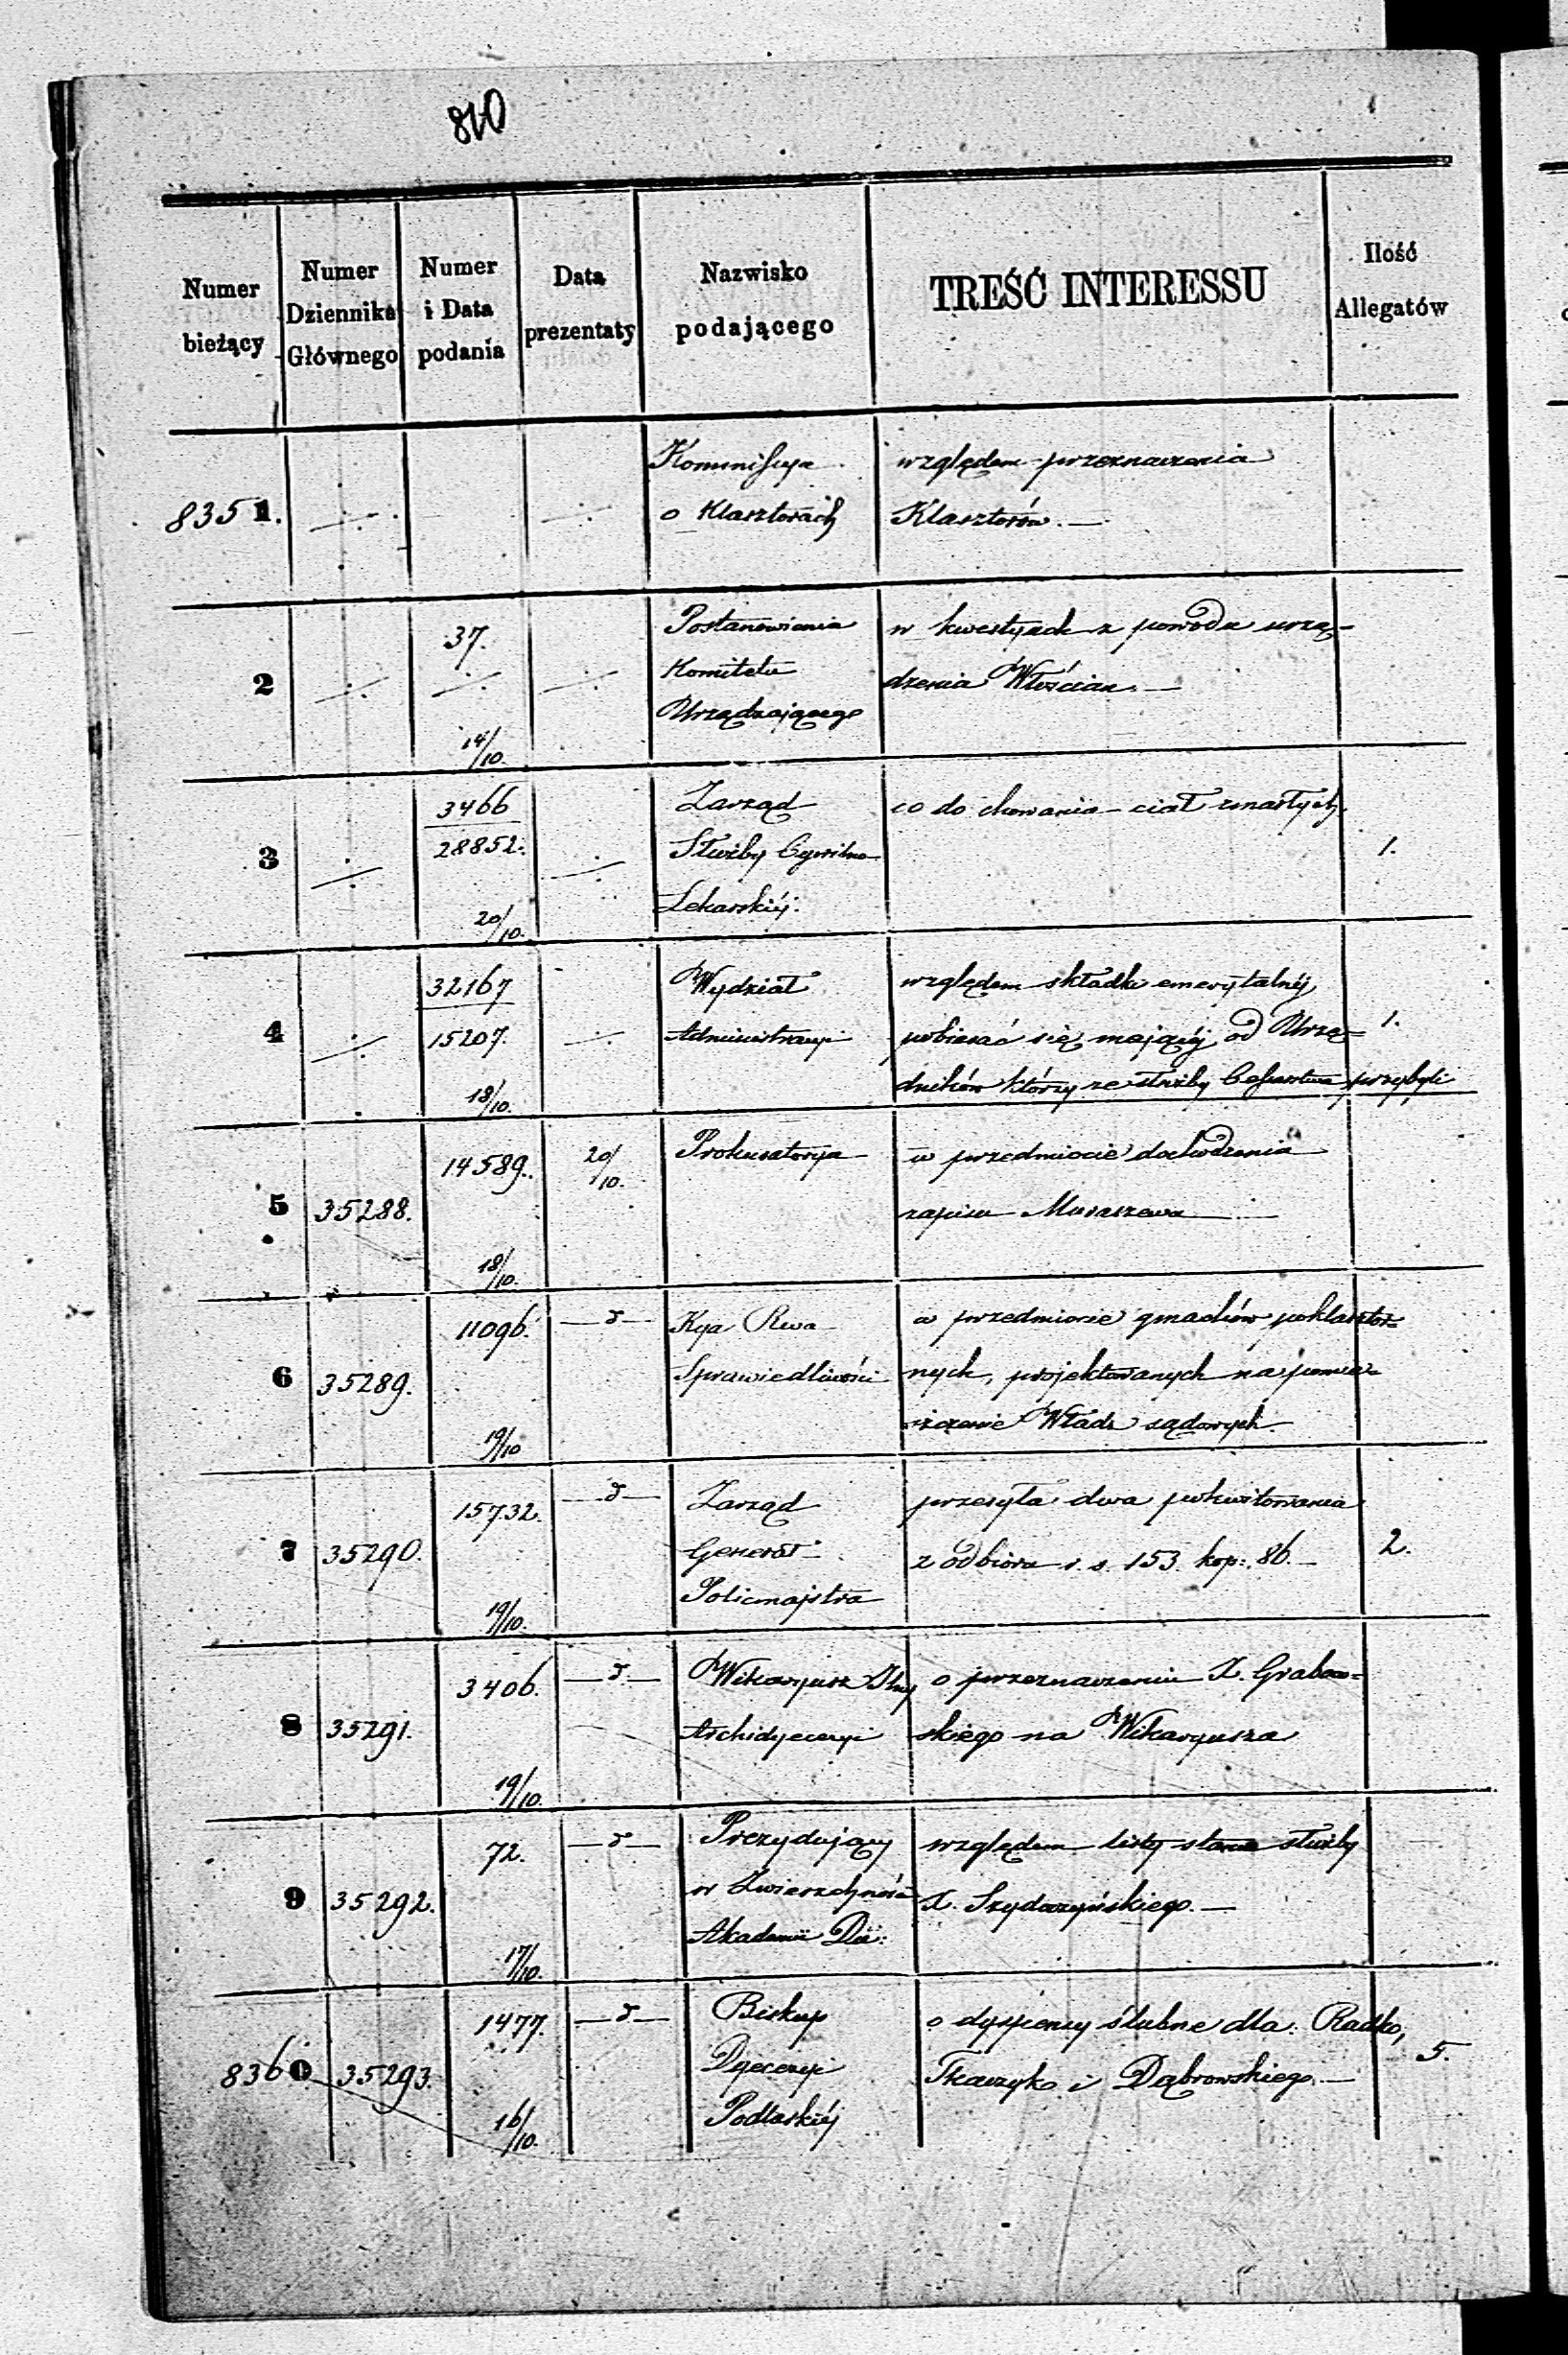 810
Numer bieżący
Numer Dziennika Głównego
Numer i Data podania
Data prezentaty
Nazwisko podającego
TREŚĆ INTERESSU
Ilość Allegatów
Kommissya względem przeznaczenia
8351. o Klasztorach Klasztorów. —
37. Postanowienia w kwestyach z powodu urzą-
2 Komitetu dzenia Włościan. —
Urządzającego
14/10.
3466 Zarząd co do chowania ciał zmarłych.
3 28852. Służby Cywilno 1.
20/10. Lekarskiéj.
32167 Wydział względem składki emerytalnéj,
4 15207. Administracyi pobierać się mającéj od Urzę= 1.
18/10. dników którzy ze służby Cesarstwa przybyli
14589. 20/10. Prokuratorya w przedmiocie dochodzenia
5 35288. zapisu
18/10.
11096. — d — Kya Rwa w przedmiocie gmachów poklasztor=
6 35289. Sprawiedliwości nych, projektowanych na pomie=
19/10 szczenie Władz sądowych.
15732. — d — Zarząd przesyła dwa pokwitowania
7 35290. Generał z odbioru r. s. 153. kop: 86. — 2.
19/10. Policmajstra
3406. — d — Wikaryusz Jlny o przeznaczeniu X. Grabow=
8 35291. Archidyecezyi skiego na Wikaryusza
19/10.
72. — d — Prezydujący względem listy stanu służby
9 35292. w Zwierzchności X.
17/10. Akademii Du:
1477. — d — Biskup o dyspensy ślubne dla: Radko,
8360 35293. Dyecezyi Tkaczyka i Dąbrowskiego. — 5.
16/10. Podlaskiéj